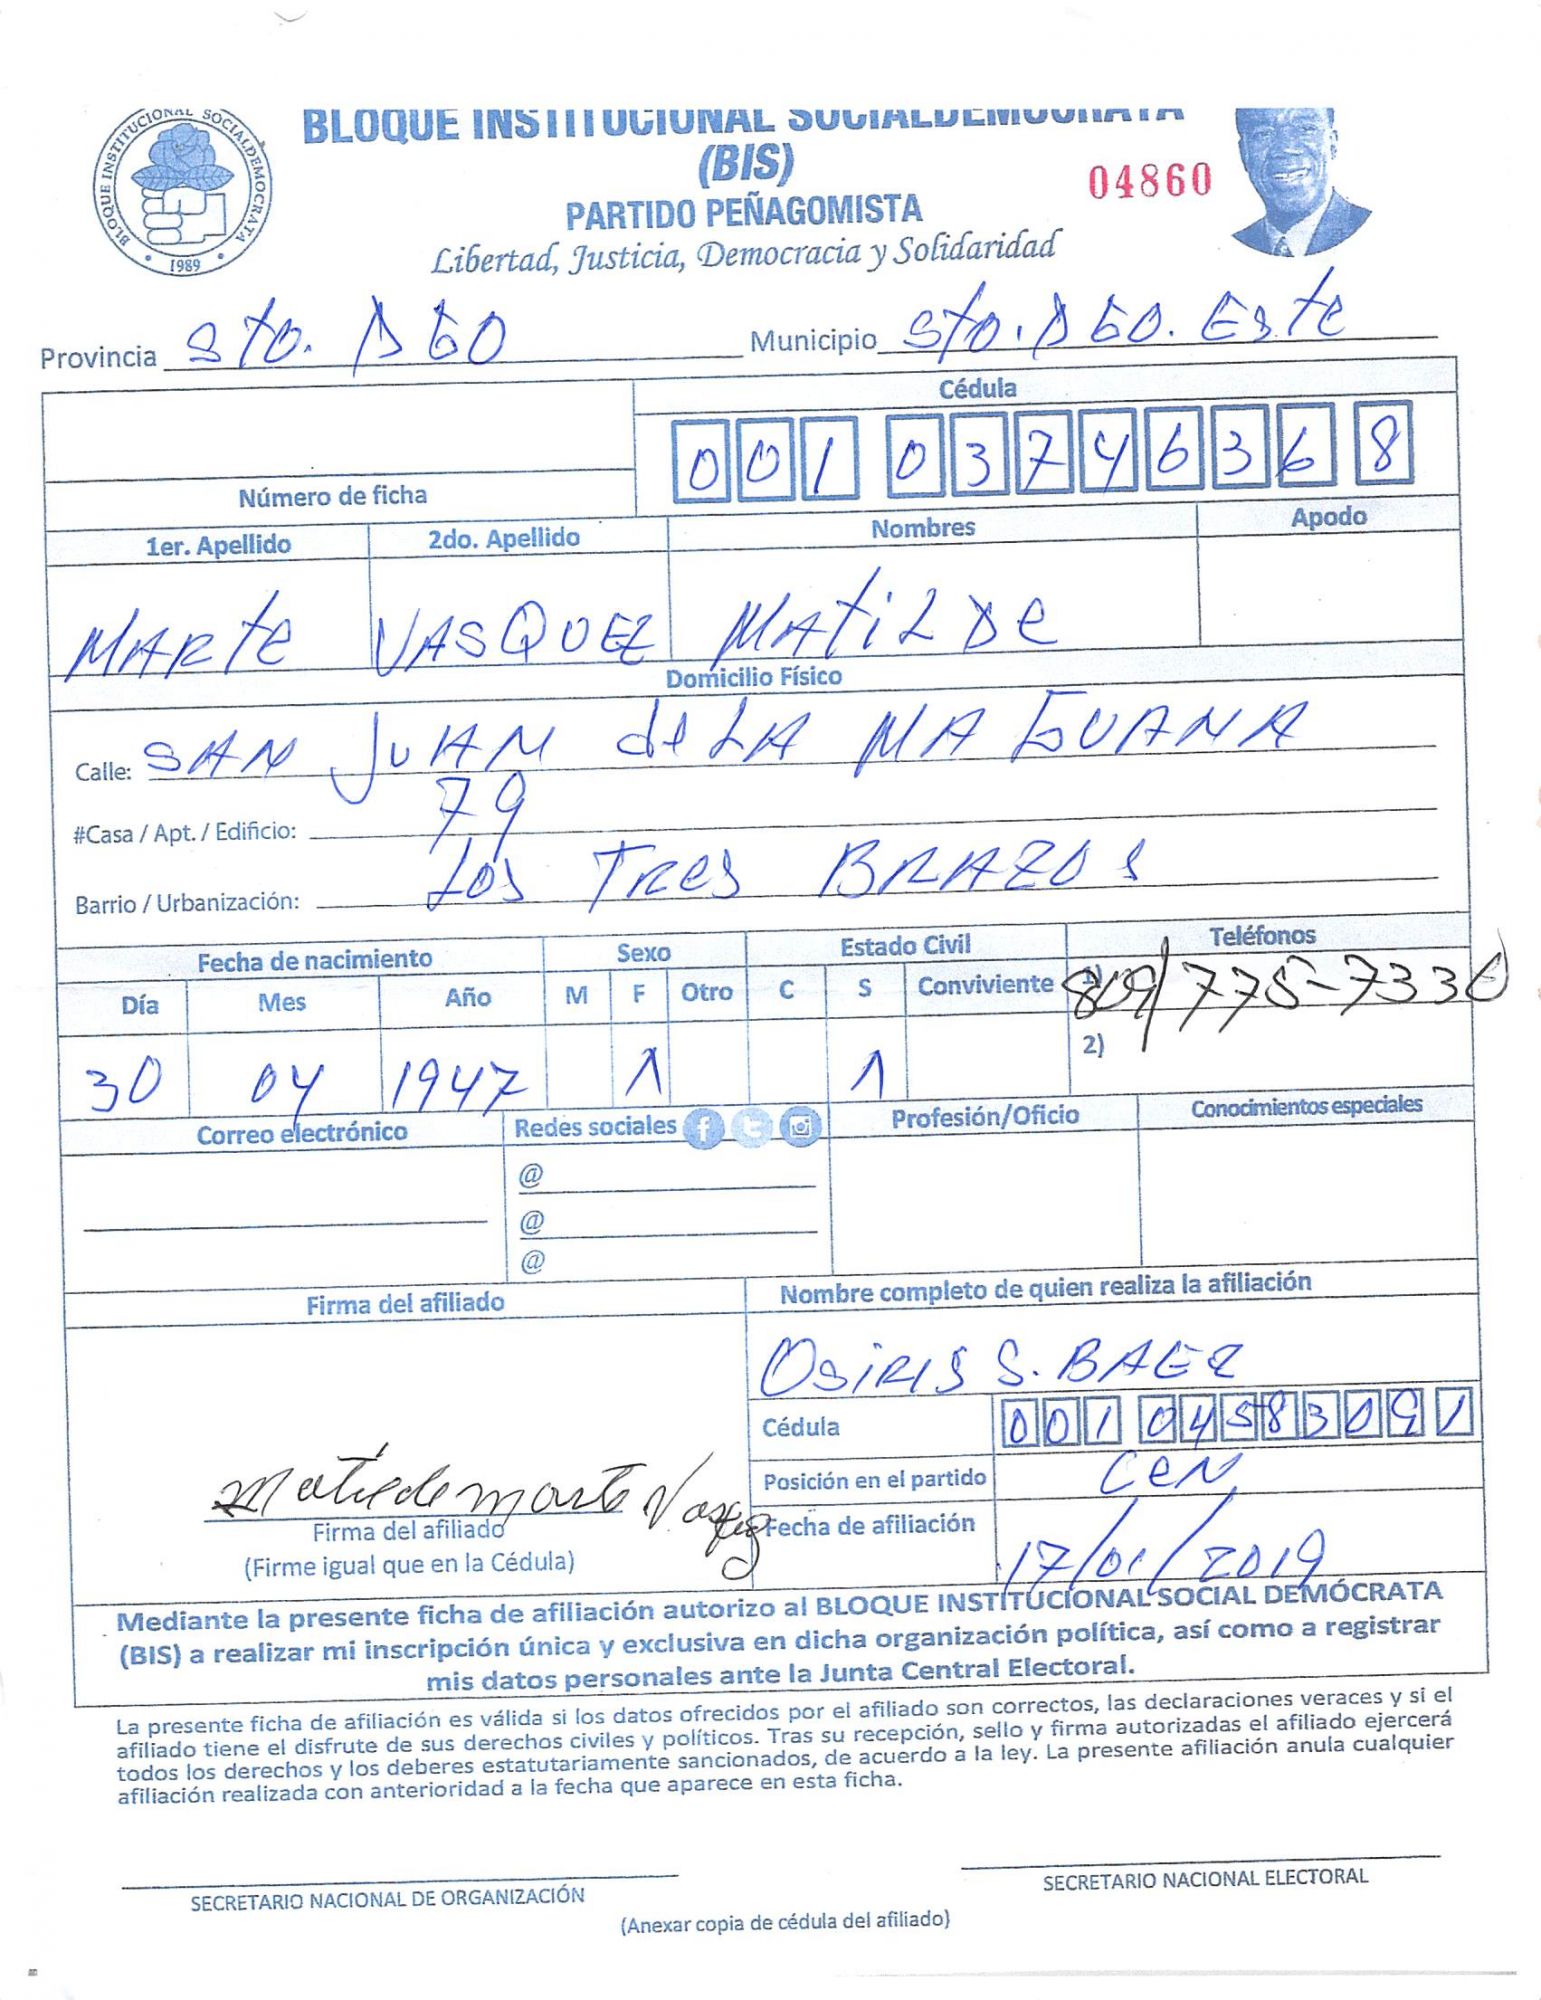 BLOQUE INSTITUCIONAL SOCIALDEMOCRATA
(BIS)
PARTIDO PEÑAGOMISTA
Libertad, Justicia, Democracia y Solidaridad
04860
BLOQUE INSTITUCIONAL SOCIALDEMOCRATA
1989
Provincia Sto. DGO Municipio Sto. DGO. Este
Cédula
001 0374636 8
Número de ficha
1er. Apellido 2do. Apellido Nombres Apodo
MARTE VASQUEZ MATILDE
Domicilio Físico
Calle: SAN JUAN de LA MAGUANA
#Casa / Apt. / Edificio: 79
Barrio / Urbanización: Los Tres BRAZOS
Fecha de nacimiento Sexo Estado Civil Teléfonos
Día Mes Año M F Otro C S Conviviente 1) 809/775-7330
2)
30 04 1947
Correo electrónico Redes sociales Profesión/Oficio Conocimientos especiales
@
@
@
Firma del afiliado Nombre completo de quien realiza la afiliación
OSIRIS S. BAEZ
Cédula 001 0458309 1
Posición en el partido CEN
Matilde Marte Vasquez
Firma del afiliado
(Firme igual que en la Cédula)
Fecha de afiliación 17/01/2019
Mediante la presente ficha de afiliación autorizo al BLOQUE INSTITUCIONAL SOCIAL DEMÓCRATA
(BIS) a realizar mi inscripción única y exclusiva en dicha organización política, así como a registrar
mis datos personales ante la Junta Central Electoral.
La presente ficha de afiliación es válida si los datos ofrecidos por el afiliado son correctos, las declaraciones veraces y si el
afiliado tiene el disfrute de sus derechos civiles y políticos. Tras su recepción, sello y firma autorizadas el afiliado ejercerá
todos los derechos y los deberes estatutariamente sancionados, de acuerdo a la ley. La presente afiliación anula cualquier
afiliación realizada con anterioridad a la fecha que aparece en esta ficha.
SECRETARIO NACIONAL DE ORGANIZACIÓN SECRETARIO NACIONAL ELECTORAL
(Anexar copia de cédula del afiliado)